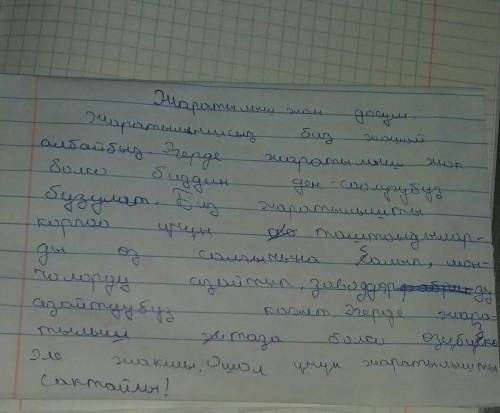 Жаратылыш жан досум.
Жаратылышсыз биз жашай
албайбыз. Эгерде жаратылыш жок
болсо биздин ден-соолугубуз
бузулат. Биз жаратылышты
коргоо үчүн таштандылар-
ды өз салып, мон-
чолорду азайтып, заводдорду
азайтуубуз керек. Эгерде жара-
тылыш таза болсо өзүбүзгө
эле жакшы. Ошол үчүн жаратылышты
сактайлы!